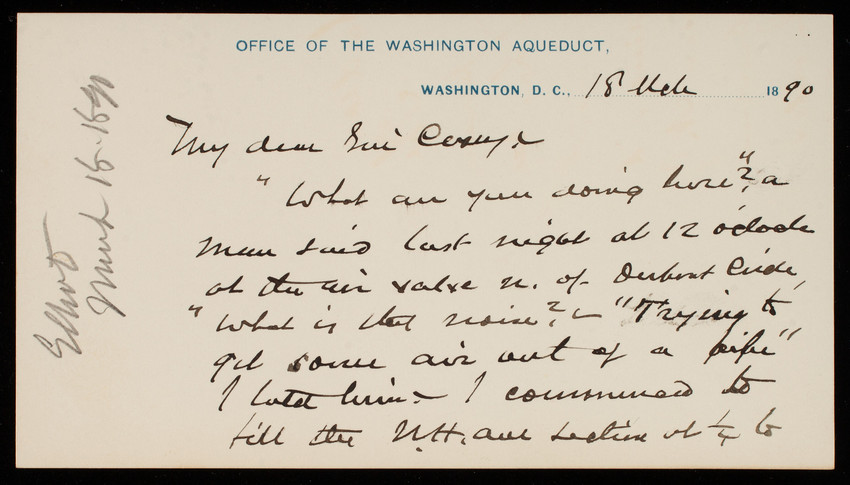 OFFICE OF THE WASHINGTON AQUEDUCT,
WASHINGTON, D. C., 18 Mch 1890
My dear Gen Casey:
"What are you doing here"? a
man said last night at 12 o'clock
at the air valve n. of Dupont Circle,
"What is that noise"? "Trying to
get some air out of a pipe"
I told him - I commenced to
fill the N.H. ave section at ¼ to
Elliot
March 18-1890